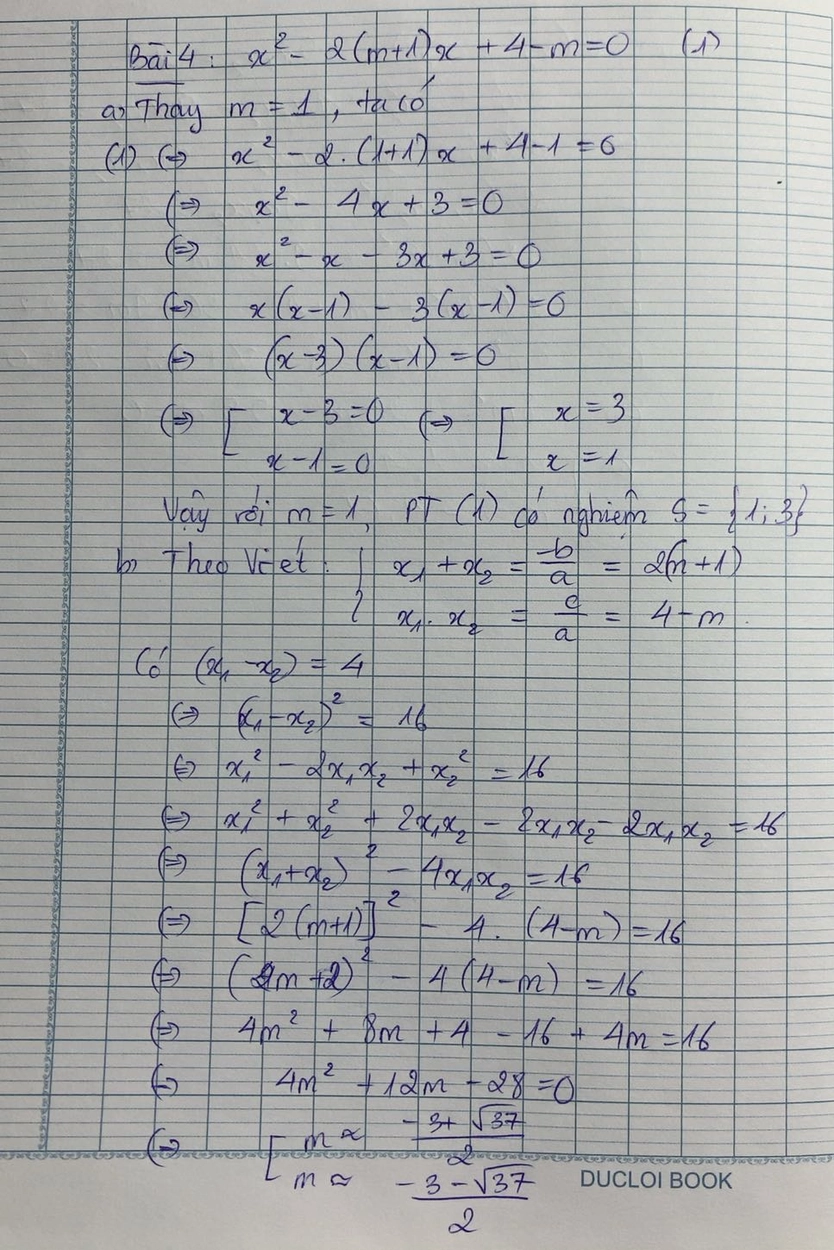 Bài 4: x² - 2(m+1)x + 4-m=0 (1)
a, Thay m = 1, ta có
(1) (=) x² - 2.(1+1)x + 4-1=0
(=) x² - 4x+3=0
(=) x² - x - 3x+3=0
(=) x(x-1) - 3(x-1)=0
(=) (x-3)(x-1)=0
(=) [ x-3=0 (=) [ x=3
x-1=0 x=1
Vậy với m=1, PT (1) có nghiệm S={1;3}
b, Theo Viét: { x₁+x₂ = -b/a = 2(m+1)
x₁.x₂ = c/a = 4-m.
Có (x₁-x₂)=4
(=) (x₁-x₂)² = 16
(=) x₁² - 2x₁x₂ + x₂² = 16
(=) x₁² + x₂² + 2x₁x₂ - 2x₁x₂ - 2x₁x₂ = 16
(=) (x₁+x₂)² - 4x₁x₂=16
(=) [2(m+1)]² - 4.(4-m)=16
(=) (2m+2)² - 4(4-m) =16
(=) 4m² + 8m + 4 - 16 + 4m=16
(=) 4m² + 12m - 28=0
(=) [ m ≈ -3+√37/2
m ≈ -3-√37/2
DUCLOI BOOK